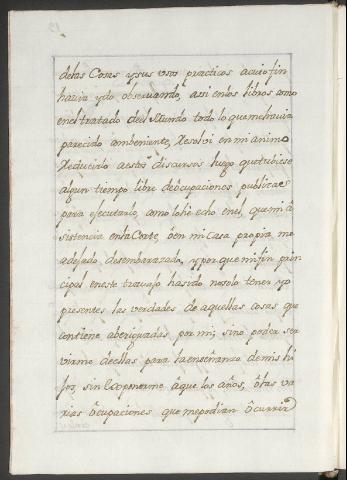 delas Cosas y sus usos practicos acuio fin
havia ydo observando, assi enlos libros como
enel tratado del Mundo todo lo quemehavia
parecido combeniente, Resolvi en mi animo
Reducirlo aestos discursos luego quetubiese
algun tiempo libre de ocupaciones publicas
para ejecutarlo, como lohe echo enel, que mi a
sistencia enla Corte, ò en mi Casa propia, me
adejado desembarazado, y porque mi fin prin
cipal eneste travajo hasido nosolo tener yo
presentes las verdades de aquellas cosas que
contiene aberiguadas por mi, sino poder ser
virme de ellas para la enseñanza de mis hi
jos, sin exponerme aque los años, ò las va
rias ocupaciones que me podian ocurrir